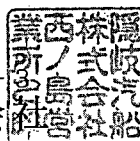 隠岐汽船
株式会社
西ノ島営
業所